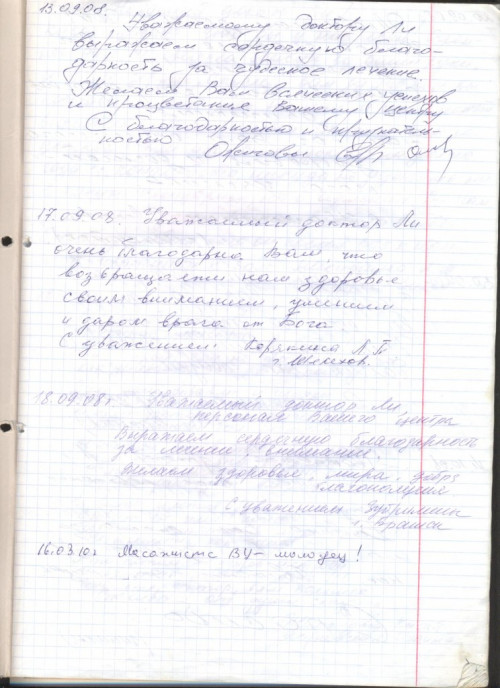 13.09.08.
Уважаемому доктору Ли
выражаем сердечную благо-
дарность за чудесное лечение.
Желаем Вам всяческих успехов
и процветания Вашему центру
С благодарностью и признатель-
ностью
17.09.08. Уважаемый доктор Ли
очень благодарна Вам, что
возвращаете нам здоровье
своим вниманием, умением
и даром врача от Бога
С уважением Корякина Л П
г. Шелехов.
18.09.08г. Уважаемый доктор Ли,
персонал Вашего центра
Выражаем сердечную благодарность
за лечение, внимание.
Желаем здоровья, мира, добра
благополучия
С уважением
г. Братск
16.03.10г Масажистс ВУ - молодец!